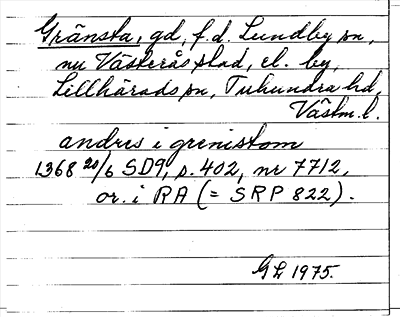 Gränsta, gd, f.d. Lundby sn,
nu Västerås stad, el. by,
Lillhärads sn, Tuhundra hd,
Västm.l.
andres i grenistom
1368 20/6 SD9, s. 402, nr 7712,
or. i RA (= SRP 822).
GL 1975.